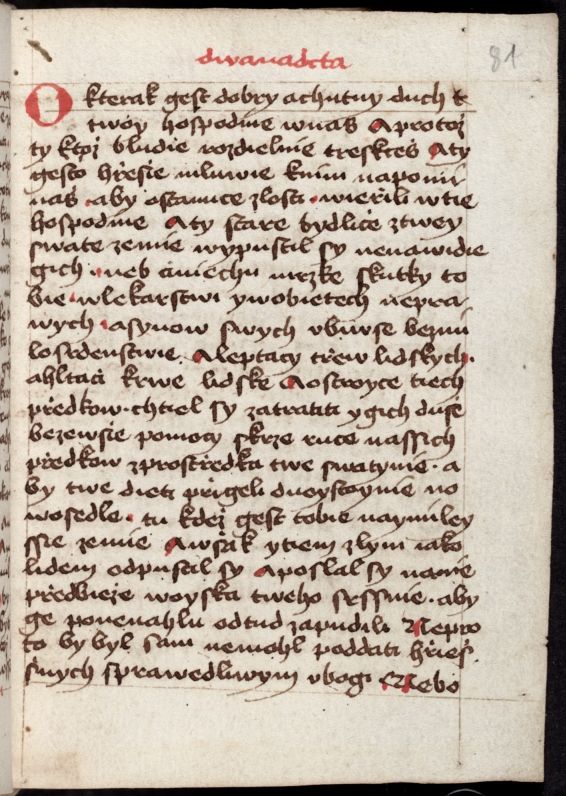 dwanadcta
81
O kterak gest dobry achutny duch t
twoy hospodine wnas Aprotoz
ty ktoz bludie rozdielnie tresktes Aty
gesto hřesie mluwie knim napomi
nas aby ostanuce zlosti wierili wtie
hospodine Aty stare bydlice ztwey
swate zemie wypustil sy nenawidie
gich neb činiechu mrzke skutky to
bie wlekarstwi ywobietech nepra
wych asynow swych vbiwse bezmi
losrdenstwie Aleptacy třew lidskych
ahltaci krwe lidske Aostroyce tiech
předkow chtiel sy zatratiti ygich duse
bezewsie pomocy skrze ruce nassich
předkow zprostředka twe swatynie a
by twe dieti přigeli duoystoynie no
wosedle tu kdez gest tobie naymiley
ssie zemie Awsak ytiem zlym iako
lidem odpustil sy Aposlal sy namie
předbieze woyska tweho srssnie aby
ge ponenahlu odtud zapudili Nepro
to by byl sam nemohl poddati hřies
snych sprawedliwym vbogi Nebo